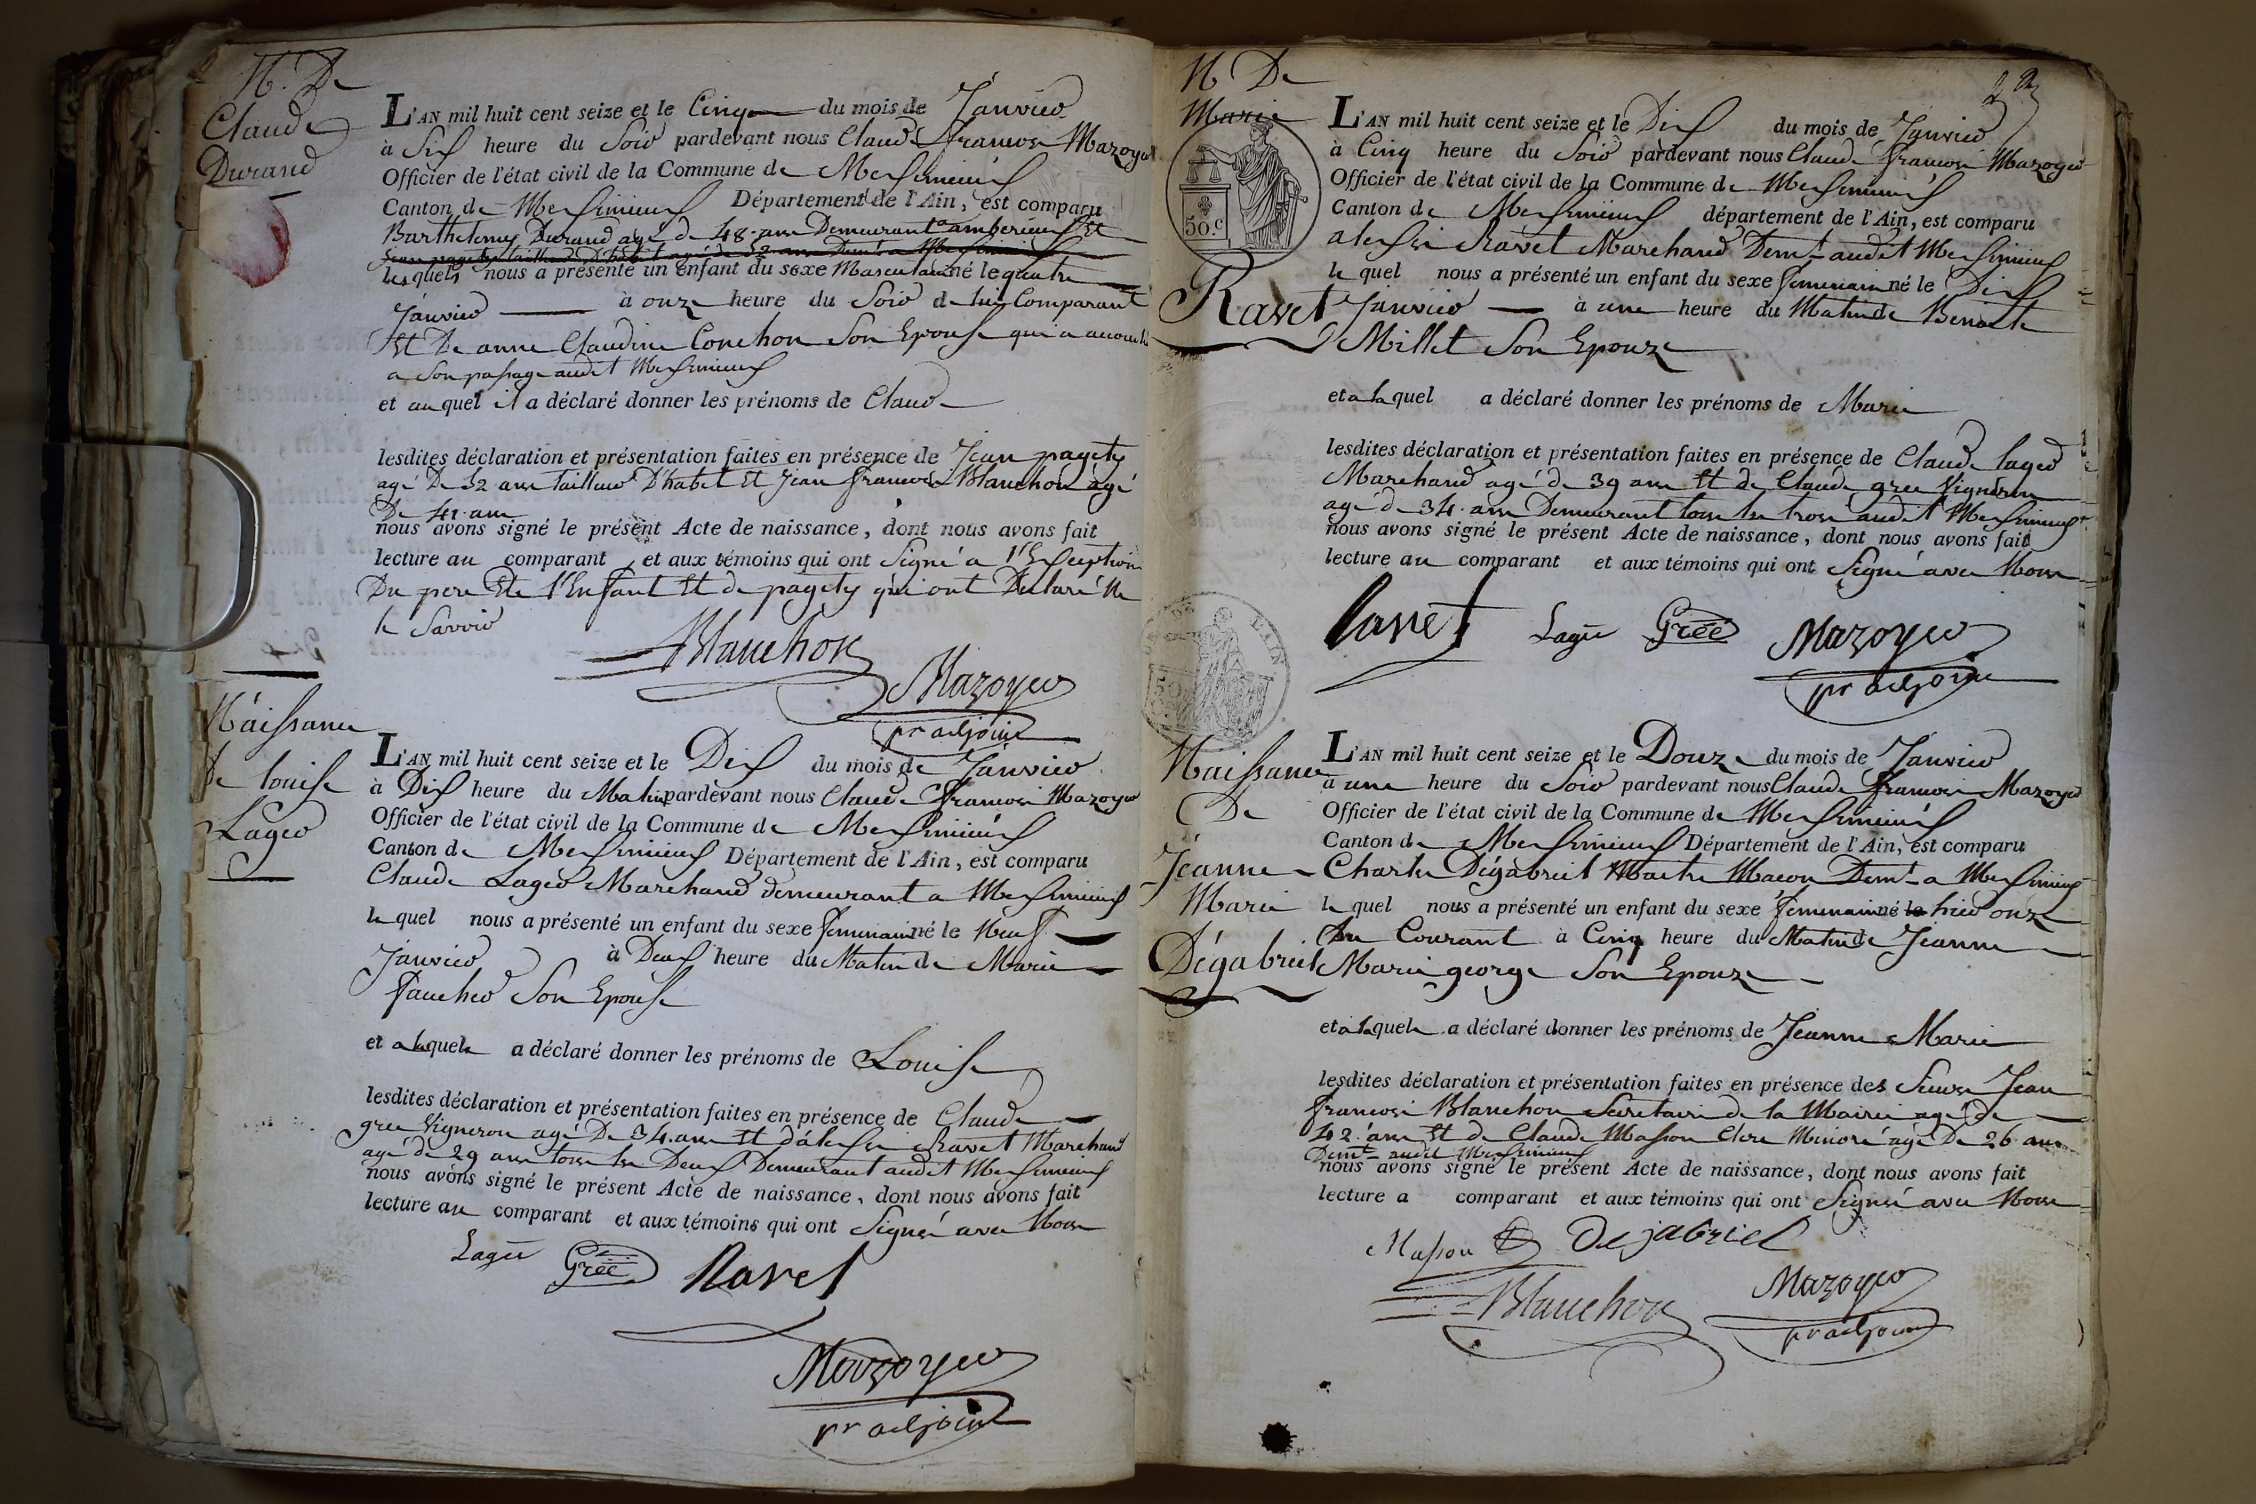 N. De
Claude
Durand
L'AN mil huit cent seize et le Cinq du mois de Janvier
à Six heure du Soir pardevant nous Claude françois Mazoyer
Officier de l'état civil de la Commune de Messimieux
Canton de Messimieux Département de l'Ain, est comparu
Barthelemy Durand agé de 48 ans Demeurant a amberieux Et
lesquels nous a présenté un enfant du sexe Masculain né le quatre
Janvier à onze heure du Soir de lui Comparant
Et De anne Claudine Conchon Son Epouse qui a accouché
a Son passage audit Messimieux
et auquel il a déclaré donner les prénoms de Claude
lesdites déclaration et présentation faites en présence de Jean pagety
agé De 32 ans tailleur D'habit Et Jean françois Blanchon agé
De 41 ans
nous avons signé le présent Acte de naissance, dont nous avons fait
lecture au comparant et aux témoins qui ont Signé a l'Exception
Du pere De l'Enfant Et de pagety qui ont Declaré Ne
le Savoir
Blanchon
Mazoyer
pr adjoint
Naissance
De louise
Lager
L'AN mil huit cent seize et le Dix du mois de Janvier
à Dix heure du Matin pardevant nous Claude françois Mazoyer
Officier de l'état civil de la Commune de Messimieux
Canton de Messimieux Département de l'Ain, est comparu
Claude Lager Marchand demeurant a Messimieux
lequel nous a présenté un enfant du sexe feminain né le Neuf
Janvier à Deux heure du Matin de Marie
faucher Son Epouse
et a laquele a déclaré donner les prénoms de Louise
lesdites déclaration et présentation faites en présence de Claude
gree Vigneron agé De 34 ans Et d'alexsi Ravet Marchand
agé de 29 ans tous les Deux Demeurant audit Messimieux
nous avons signé le présent Acte de naissance, dont nous avons fait
lecture au comparant et aux témoins qui ont Signé avec Nous
Lager Grée Ravet
Mazoyer
pr adjoint
N De
Marie
Ravet
50.c
22
L'AN mil huit cent seize et le Dix du mois de Janvier
à Cinq heure du Soir pardevant nous Claude françois Mazoyer
Officier de l'état civil de la Commune de Messimieux
Canton de Messimieux département de l'Ain, est comparu
alexsi Ravet Marchand Demt audit Messimieux
lequel nous a présenté un enfant du sexe feminain né le Dix
Janvier à une heure du Matin de Benoite
Millet Son Epouze
et a laquel a déclaré donner les prénoms de Marie
lesdites déclaration et présentation faites en présence de Claude lager
Marchand agé de 39 ans Et de Claude gree Vigneron
agé de 34 ans Demeurant tous les trois audit Messimieux
nous avons signé le présent Acte de naissance, dont nous avons fait
lecture au comparant et aux témoins qui ont Signé avec Nous
Ravet Lager Grée Mazoyer
pr adjoint
L'AIN
Naissance
De
Jeanne
Marie
Dégabriel
L'AN mil huit cent seize et le Douze du mois de Janvier
à une heure du Soir pardevant nous Claude françois Mazoyer
Officier de l'état civil de la Commune de Messimieux
Canton de Messimieux Département de l'Ain, est comparu
Charles Dégabriel Maitre Macon Demt a Messimieux
lequel nous a présenté un enfant du sexe feminain né le hier onze
Du Courant à Cinq heure du Matin de Jeanne
Marie george Son Epouze
et a laquele a déclaré donner les prénoms de Jeanne Marie
lesdites déclaration et présentation faites en présence des Sieurs Jean
françois Blanchon Secretaire de la Mairie agé de
42 ans Et de Claude Masson Clerc Minoré agé De 26 ans
Demt audit Messimieux
nous avons signé le présent Acte de naissance, dont nous avons fait
lecture a comparant et aux témoins qui ont Signé avec Nous
Masson Degabriel
Blanchon Mazoyer
pr adjoint